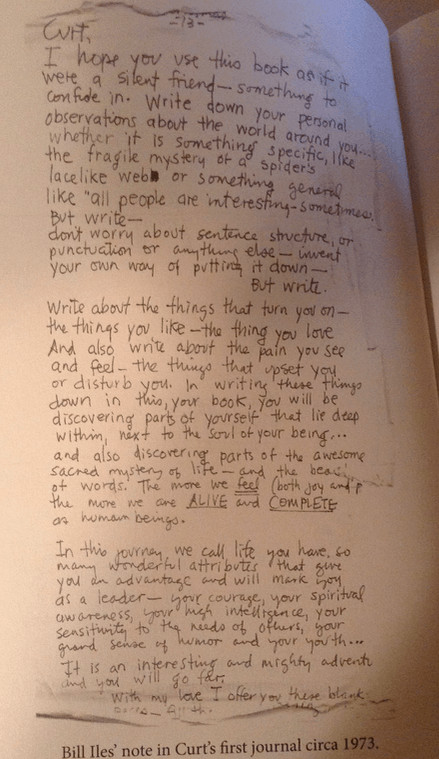 -73-
Curt,
I hope you use this book as if it
were a silent friend— something to
confide in. Write down your personal
observations about the world around you...
whether it is something specific, like
the fragile mystery of a spider's
lacelike web or something general
like "all people are interesting-sometimes.
But write—
don't worry about sentence structure, or
punctuation or anything else— invent
your own way of putting it down—
But write.
Write about the things that turn you on—
the things you like—the thing you love
And also write about the pain you see
and feel— the things that upset you
or disturb you. In writing these things
down in this, your book, you will be
discovering parts of yourself that lie deep
within, next to the soul of your being...
and also discovering parts of the awesome
sacred mystery of life— and the beau
of words. The more we feel (both joy and p
the more we are ALIVE and COMPLETE
as human beings.
In this journey we call life you have so
many wonderful attributes that give
you an advantage and will mark you
as a leader— your courage, your spiritual
awareness, your high intelligence, your
sensitivity to the needs of others, your
grand sense of humor and your youth...
It is an interesting and mighty adventu
and you will go far.
With my love I offer you these blank
Bill Iles' note in Curt's first journal circa 1973.